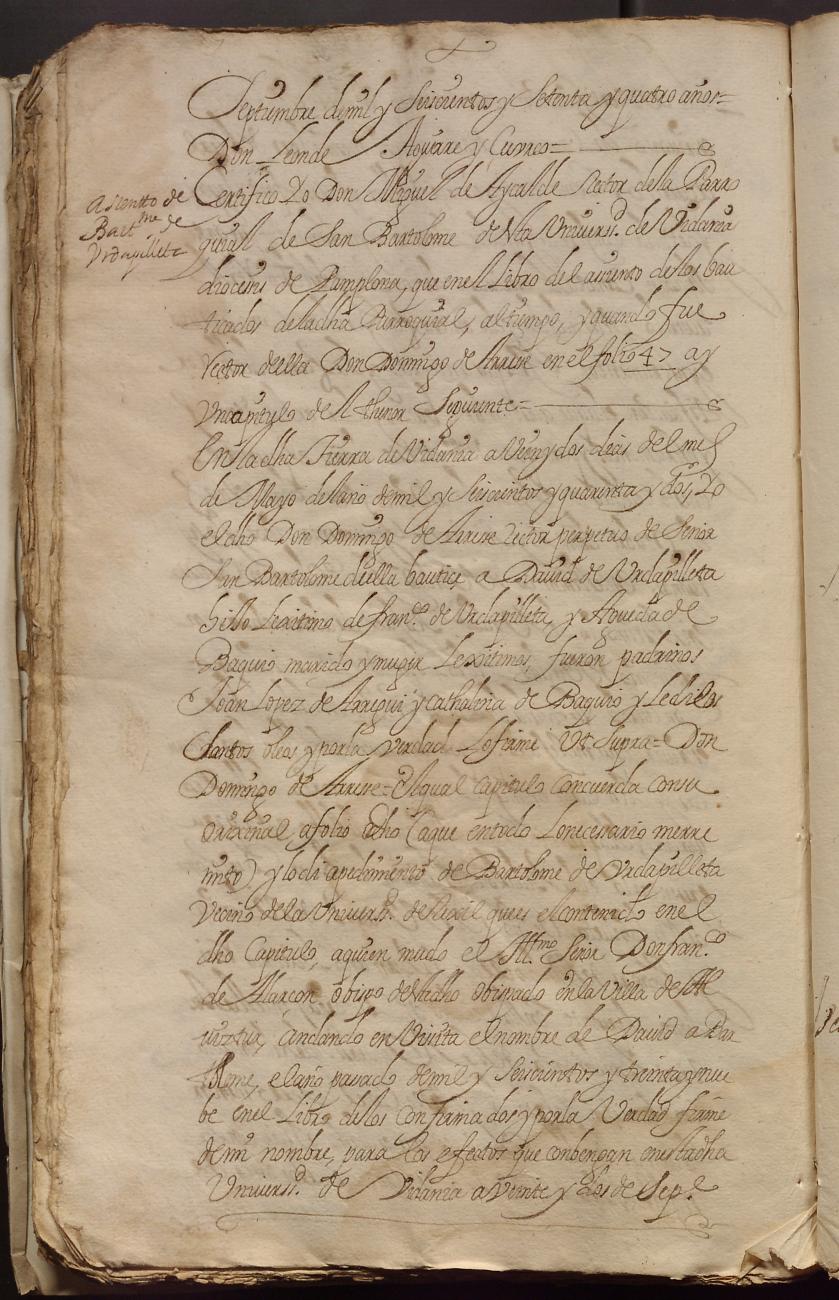 Septiembre de mil y Seiscientos y Setenta y quatro años=
Don Leon de Aguirre y Curco=
asiento de
Baut.mo de
Urdapilleta
Certifico Yo Don Miguel de Aycalde Retor de la Parro
quial de San Bartolome desta Univers.d de Vidania
diocesis de Pamplona, que en el Libro del asiento de los bau
ticados de la dha Parroquial, al tiempo, y quando fue
retor della Don Domingo de Arrese en el folio 47 ay
Un capitulo del thenor Siguiente=
En la dha Tierra de Vidania a Veinydos dias del mes
de Mayo del año de mil y Seiscientos y quarenta y dos, Yo
el dho Don Domingo de Arrese retor perpetuo de Señor
San Bartolome della bautice a David de Urdapilleta
hillo Lexitimo de fran.co de Urdapilleta, y Agueda de
Baquio marido y muger Lexitimos, fueron padrinos
Joan Lopez de Arregui y Cathalina de Baquio y Ledi los
Santos oleos y por la Verdad Lo firme Ut Supra= Don
Domingo de Arrese= El qual Capitulo Concuerda con su
Orixinal a folio dho (a que en todo Lo necesario me rre
mito) y lo di a pedimiento de Bartolome de Urdapilleta
Vecino de la Univers.d de Rexil que es el contenido en el
dho Capitulo, a quien mudo el Ill.mo Señor Don fran.co
de Alarcon obispo de dicho Obispado en la Villa de
andando en Visita el nombre de David a Bar
tolome, el año pasado de mil y Seiscientos y treinta y nue
be en el Libro de los Confirmados y por la Verdad firme
de mi nombre, para los efectos que conbengan en esta dha
Univers.d de Vidania a Veinte y dos de Sep.e